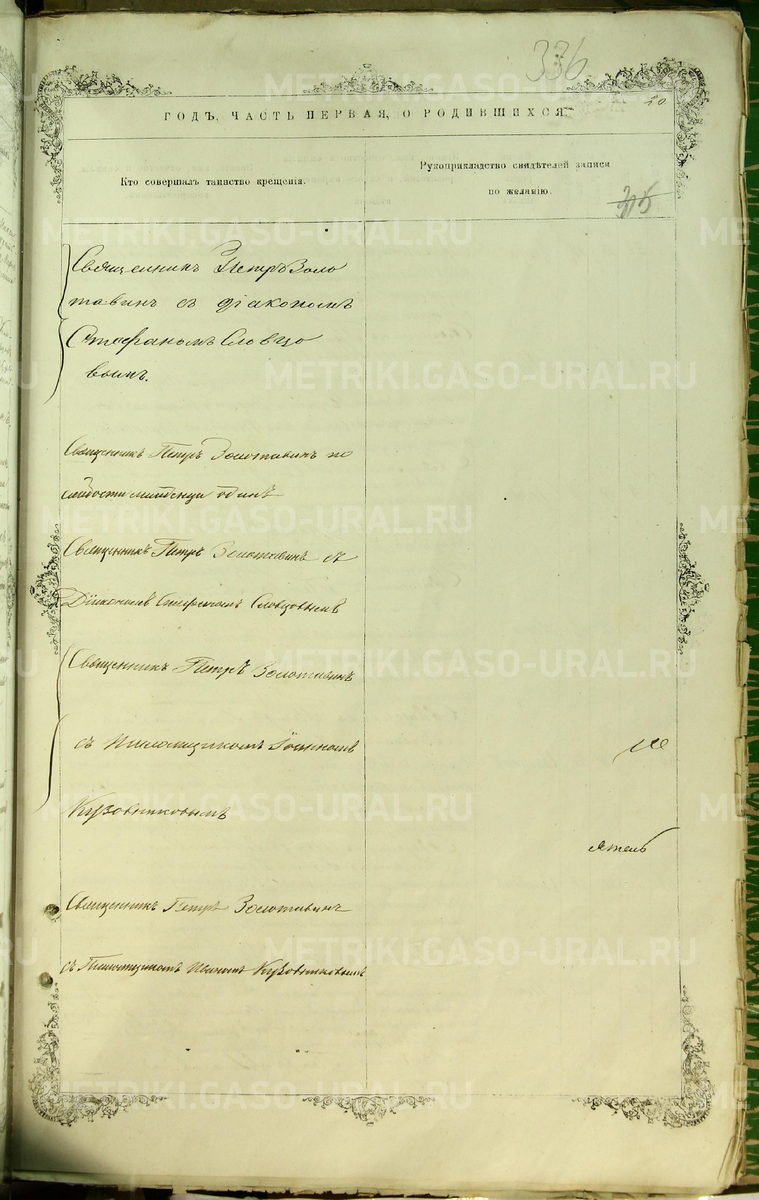 336
20
ГОДЪ, ЧАСТЬ ПЕРВАЯ, О РОДИВШИХСЯ.
Кто совершалъ таинство крещенія.
Рукоприкладство свидѣтелей записи
по желанію.
Священникъ Петръ Золо
тавинъ съ діакономъ
Стефаномъ Словцо
вымъ.
Священникъ Петръ Золотавинъ по
слабости младенца одинъ
Священникъ Петръ Золотавинъ съ
Діакономъ Стефаномъ Словцовымъ
Священникъ Петръ Золотавинъ
съ Псаломщикомъ Іоанномъ
Кузовниковымъ
Священникъ Петръ Золотавинъ
съ Псаломщикомъ Иваномъ Кузовниковымъ
METRIKI.GASO-URAL.RU